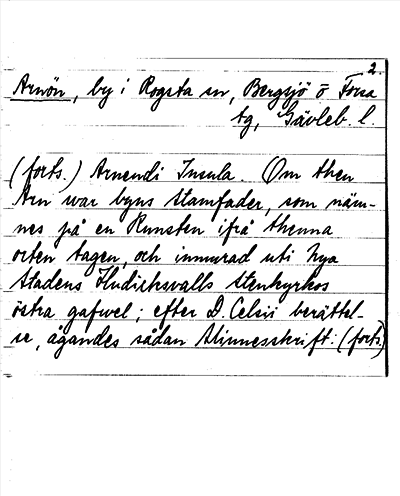 2.
Arnön, by i Rogsta sn, Bergsjö o Forsa
tg, Gävleb. l.
(forts.) Arnendi Insula. Om then
Arn war byns Stamfader, som näm-
nes på en Runsten ifrå thenna
orten tagen, och inmurad uti nya
Stadens Hudichswalls Stenkyrkos
östra gafwel; efter D. Celsii berättel-
se, ägandes sådan Minnesskrift: (forts.)